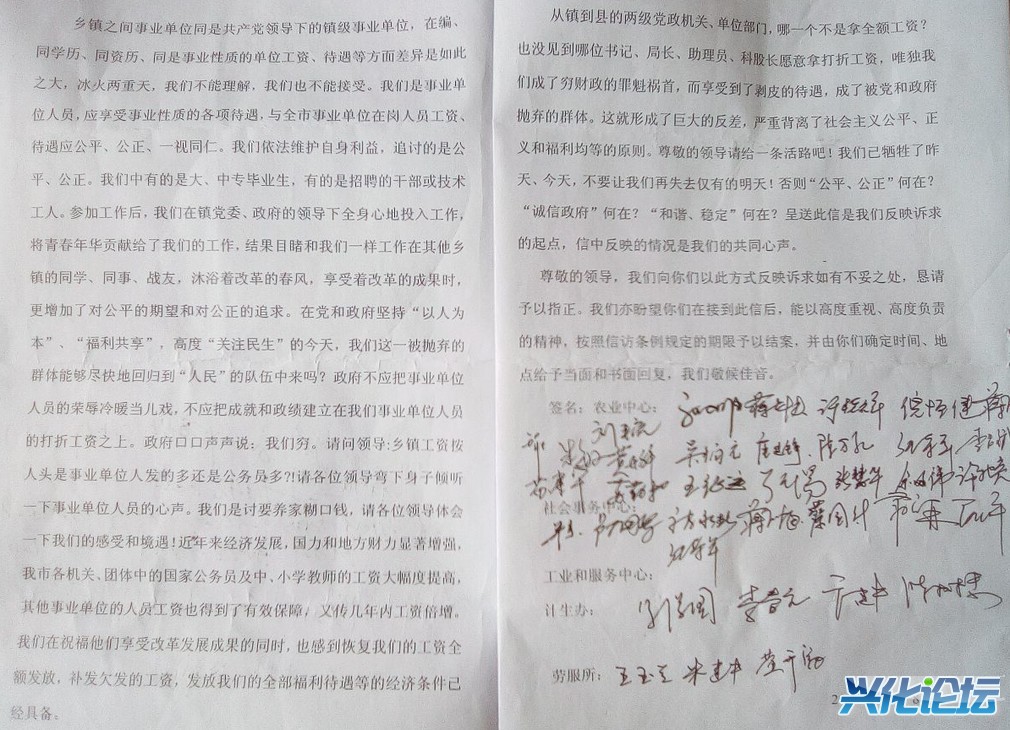 乡镇之间事业单位同是共产党领导下的镇级事业单位，在编、
同学历、同资历、同是事业性质的单位工资、待遇等方面差异是如此
之大，冰火两重天，我们不能理解，我们也不能接受。我们是事业单
位人员，应享受事业性质的各项待遇，与全市事业单位在岗人员工资、
待遇应公平、公正、一视同仁。我们依法维护自身利益，追讨的是公
平、公正。我们中有的是大、中专毕业生，有的是招聘的干部或技术
工人。参加工作后，我们在镇党委、政府的领导下全身心地投入工作，
将青春年华贡献给了我们的工作，结果目睹和我们一样工作在其他乡
镇的同学、同事、战友，沐浴着改革的春风，享受着改革的成果时，
更增加了对公平的期望和对公正的追求。在党和政府坚持“以人为
本”、“福利共享”，高度“关注民生”的今天，我们这一被抛弃的
群体能够尽快地回归到“人民”的队伍中来吗？政府不应把事业单位
人员的荣辱冷暖当儿戏，不应把成就和政绩建立在我们事业单位人员
的打折工资之上。政府口口声声说：我们穷。请问领导:乡镇工资按
人头是事业单位人发的多还是公务员多?!请各位领导弯下身子倾听
一下事业单位人员的心声。我们是讨要养家糊口钱，请各位领导体会
一下我们的感受和境遇！近年来经济发展，国力和地方财力显著增强，
我市各机关、团体中的国家公务员及中、小学教师的工资大幅度提高，
其他事业单位的人员工资也得到了有效保障，又传几年内工资倍增。
我们在祝福他们享受改革发展成果的同时，也感到恢复我们的工资全
额发放，补发欠发的工资，发放我们的全部福利待遇等的经济条件已
经具备。
从镇到县的两级党政机关、单位部门，哪一个不是拿全额工资？
也没见到哪位书记、局长、助理员、科股长愿意拿打折工资，唯独我
们成了穷财政的罪魁祸首，而享受到了剥皮的待遇，成了被党和政府
抛弃的群体。这就形成了巨大的反差，严重背离了社会主义公平、正
义和福利均等的原则。尊敬的领导请给一条活路吧！我们已牺牲了昨
天、今天，不要让我们再失去仅有的明天！否则“公平、公正”何在？
“诚信政府”何在？“和谐、稳定”何在？呈送此信是我们反映诉求
的起点，信中反映的情况是我们的共同心声。
尊敬的领导，我们向你们以此方式反映诉求如有不妥之处，恳请
予以指正。我们亦盼望你们在接到此信后，能以高度重视、高度负责
的精神，按照信访条例规定的期限予以结案，并由你们确定时间、地
点给予当面和书面回复，我们敬候佳音。
签名：农业中心：
社会事务中心：
工业和服务中心：
计生办：
劳服所：王玉兰 朱建中
兴化论坛